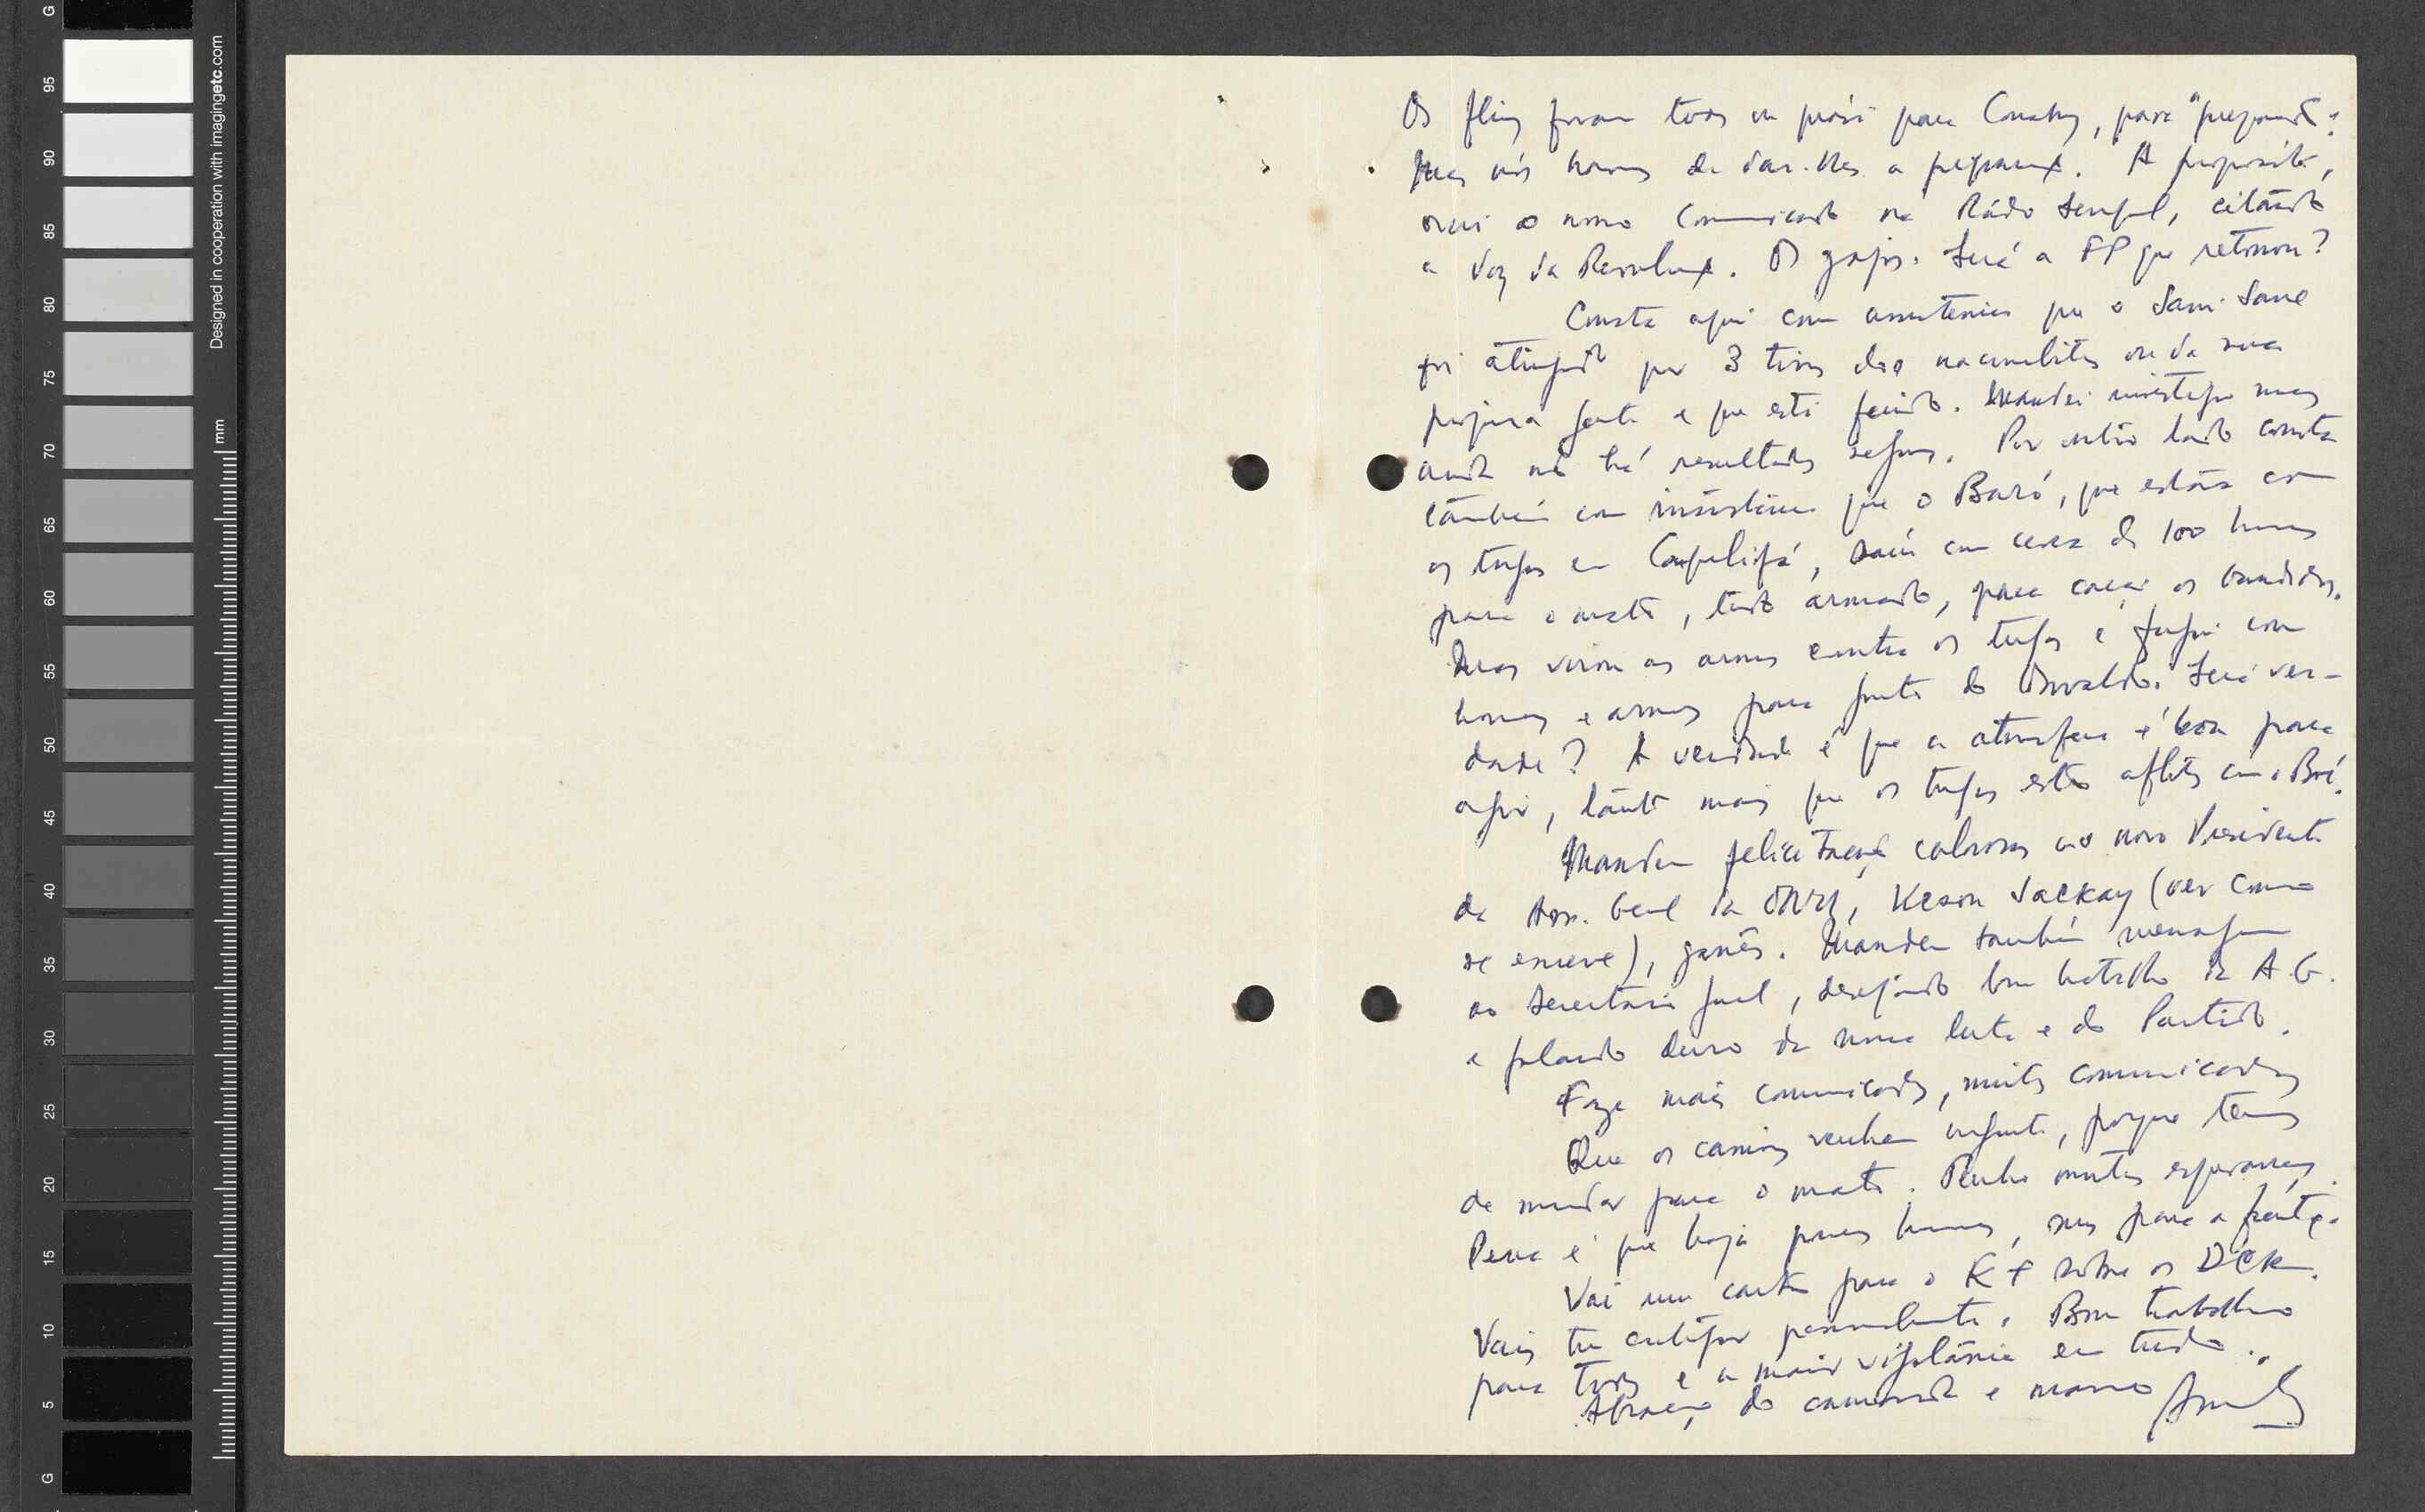 Os fling foram todos em para Conakry, para "preparar".
Mas nós havemos de dar-lhes a preparação. A propósito,
ouvi o nosso Comunicado na Rádio Senegal, citando
a Voz da Revolução. Os gajos. Será a FP que retomou?
Consta aqui com que o Sani Sané
foi atingido por 3 tiros dos nacionalistas ou da sua
própria gente e que está ferido. Mandei investigar mas
ainda não há resultados seguros. Por outro lado consta
também com insistência que o Baró, que estava com
os tugas em, saiu com cerca de 100 homens
para o mato, tudo armado, para caçar os bandidos.
Mas virou as armas contra os tugas e fugiu com
homens e armas para junto do Osvaldo. Será ver-
dade? A verdade é que a atmosfera é boa para
agir, tanto mais que os tugas estão aflitos com o
Mandem felicitações calorosas ao novo Presidente
da Ass. Geral da ONU, Keson Sackay (ver como
se escreve), ganês. Mandem também mensagem
ao Secretário geral, desejando bom trabalho da A.G.
e falando duro da nossa luta e do Partido.
Faze mais comunicados, muitos comunicados
Que os camiões venham urgente, porque temos
de mudar para o mato. Tenho muitas esperanças.
Pena é que haja poucos homens, mas para a frente.
Vai uma carta para o sobre os
Vais tu entregar pessoalmente. Bom trabalho
para todos e a maior vigilância em tudo.
Abraço do camarada e mano